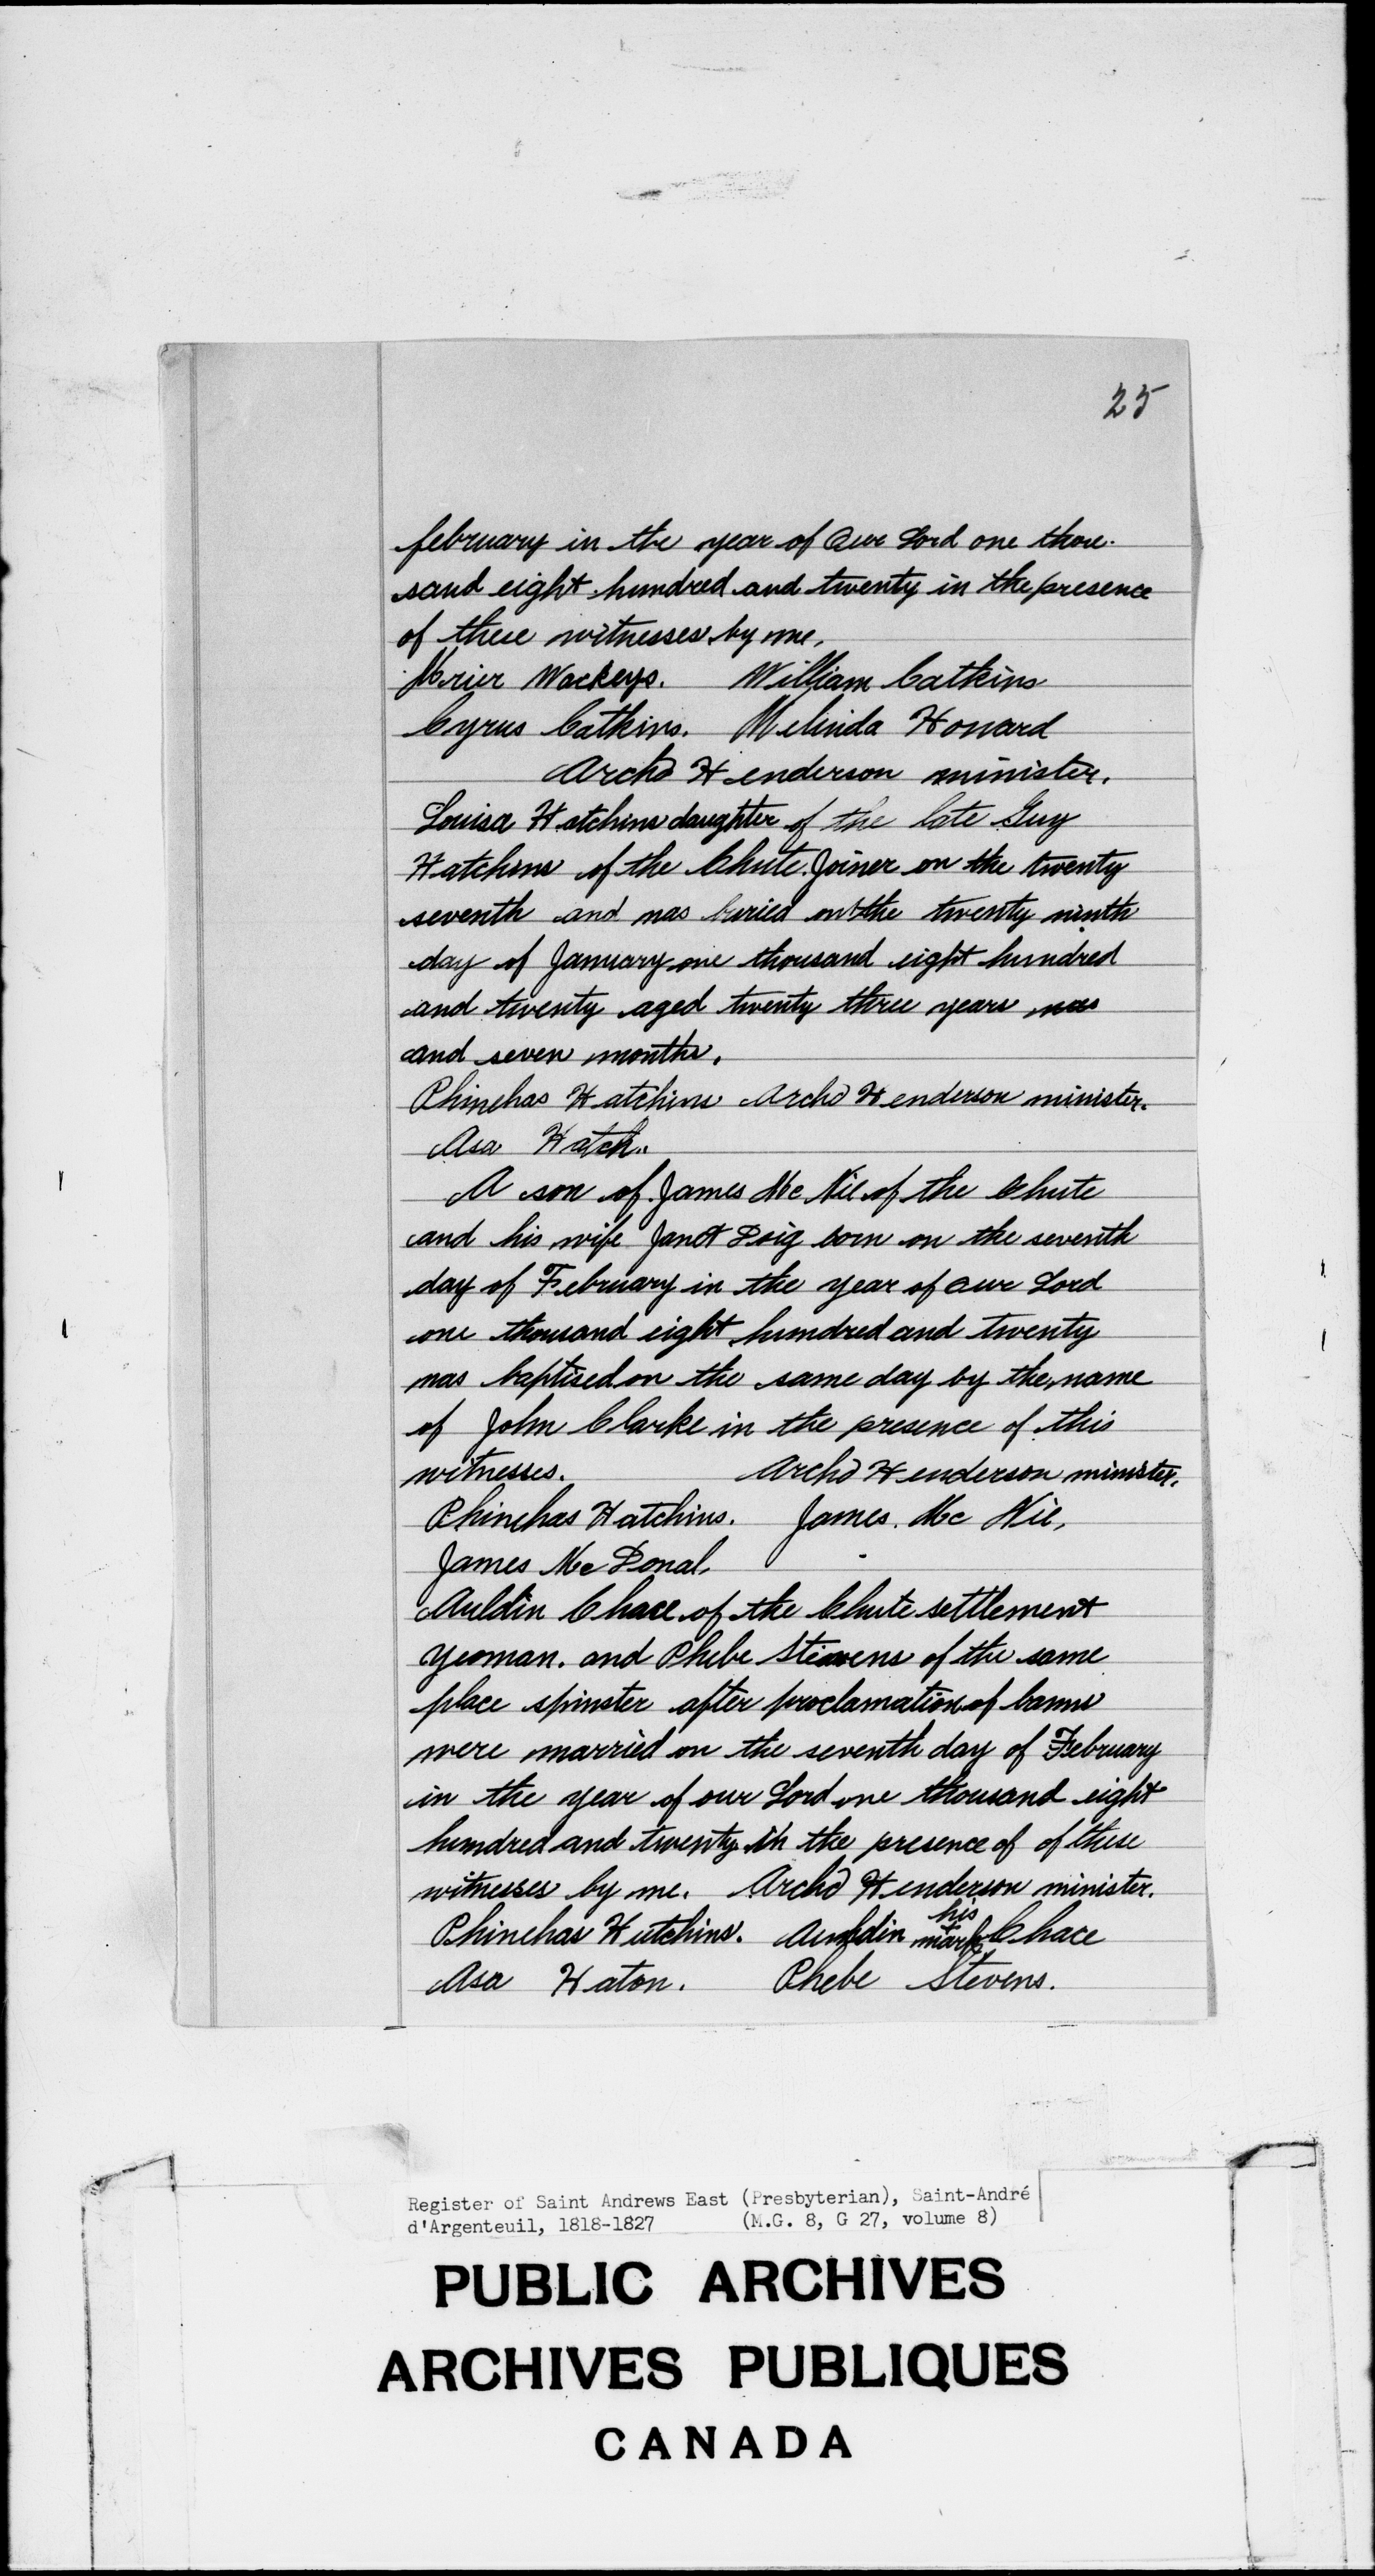 25
february in the year of Our Lord one thou-
sand eight hundred and twenty in the presence
of these witnesses by me,
Wackeys. William Catkins
Cyrus Catkins. Melinda Howard
Archd Henderson minister.
Louisa Hatchins daughter of the late Guy
Hatchins of the Chute Joiner on the twenty
seventh and was buried on the twenty ninth
day of January one thousand eight hundred
and twenty aged twenty three years was
and seven months.
Phinehas Hatchins Archd Henderson minister.
Asa Hatch.
A son of James Mc Nie of the Chute
and his wife Janet Doig born on the seventh
day of February in the year of our Lord
one thousand eight hundred and twenty
was baptised on the same day by the name
of John Clarke in the presence of this
witnesses. Archd Henderson minister.
Phinehas Hatchins. James Mc Nie,
James Mc Donal.
Auldin Chace of the Chute settlement
yeoman. and Phebe Steavens of the same
place spinster after proclamation of banns
were married on the seventh day of February
in the year of our Lord one thousand eight
hundred and twenty in the presence of of these
witnesses by me. Archd Henderson minister.
Phinehas Hutchins. Auldin his + mark Chace
Asa Haton. Phebe Stevens.
Register of Saint Andrews East (Presbyterian), Saint-André
d'Argenteuil, 1818-1827 (M.G. 8, G 27, volume 8)
PUBLIC ARCHIVES
ARCHIVES PUBLIQUES
CANADA